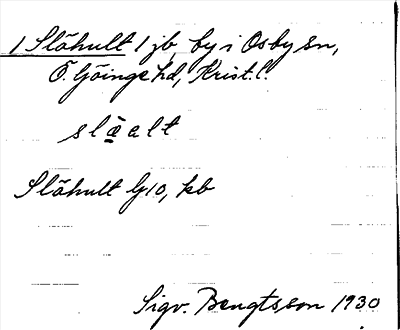 1 Slähult 1 jb, by i Osby sn,
Ö. Göinge hd, Krist. l.
slὰ̱alt
Slähult G10, kb
Sigv. Bengtsson 1930